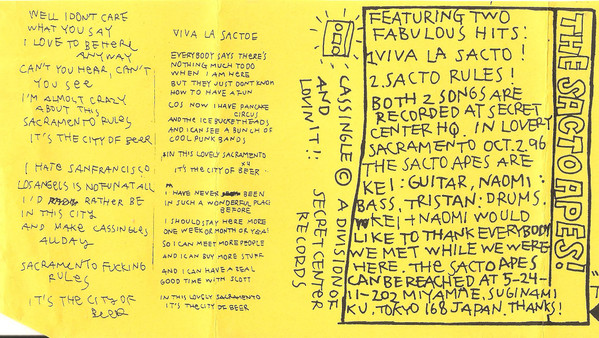 WELL I DONT CARE
WHAT YOU SAY
I LOVE TO BE HERE
ANYWAY
CAN'T YOU HEAR, CAN'T
YOU SEE
I'M ALMOST CRAZY
ABOUT THIS
SACRAMENTO RULES
IT'S THE CITY OF BEER
I HATE SANFRANCISCO
LOSANGELS IS NOT FUN AT ALL
I'D RATHER BE
IN THIS CITY
AND MAKE CASSINGLES
ALL DAY
SACRAMENTO FUCKING
RULES
IT'S THE CITY OF
BEER
VIVA LA SACTOE
EVERYBODY SAYS THERE'S
NOTHING MUCH TO DO
WHEN I AM HERE
BUT THEY JUST DONT KNOW
HOW TO HAVE A FUN
COS NOW I HAVE PANCAKE
CIRCUS
AND THE ICE BUCKETHEADS
AND I CAN SEE A BUNCH OF
COOL PUNK BANDS
IN THIS LOVELY SACRAMENTO
IT'S THE CITY OF BEER X4
I HAVE NEVER BEEN
IN SUCH A WONDERFUL PLACE
BEFORE
I SHOULD STAY HERE MORE
ONE WEEK OR MONTH OR YEAR!
SO I CAN MEET MORE PEOPLE
AND I CAN BUY MORE STUFF
AND I CAN HAVE A REAL
GOOD TIME WITH SCOTT
IN THIS LOVELY SACRAMENTO
IT'S THE CITY OF BEER
CASSINGLE © A DIVISION OF
AND
LOVIN IT!! SECRET CENTER
RECORDS
FEATURING TWO
FABULOUS HITS:
1 VIVA LA SACTO!
2. SACTO RULES!
BOTH 2 SONGS ARE
RECORDED AT SECRET
CENTER HQ. IN LOVERY
SACRAMENTO OCT. 2. 96
THE SACTO APES ARE
KEI: GUITAR, NAOMI:
BASS, TRISTAN: DRUMS.
KEI + NAOMI WOULD
LIKE TO THANK EVERYBODY
WE MET WHILE WE WERE
HERE. THE SACTO APES
CAN BE REACHED AT 5-24-
11-202 MIYAMAE, SUGINAMI
KU, TOKYO 168 JAPAN. THANKS!
THE SACTO APES!